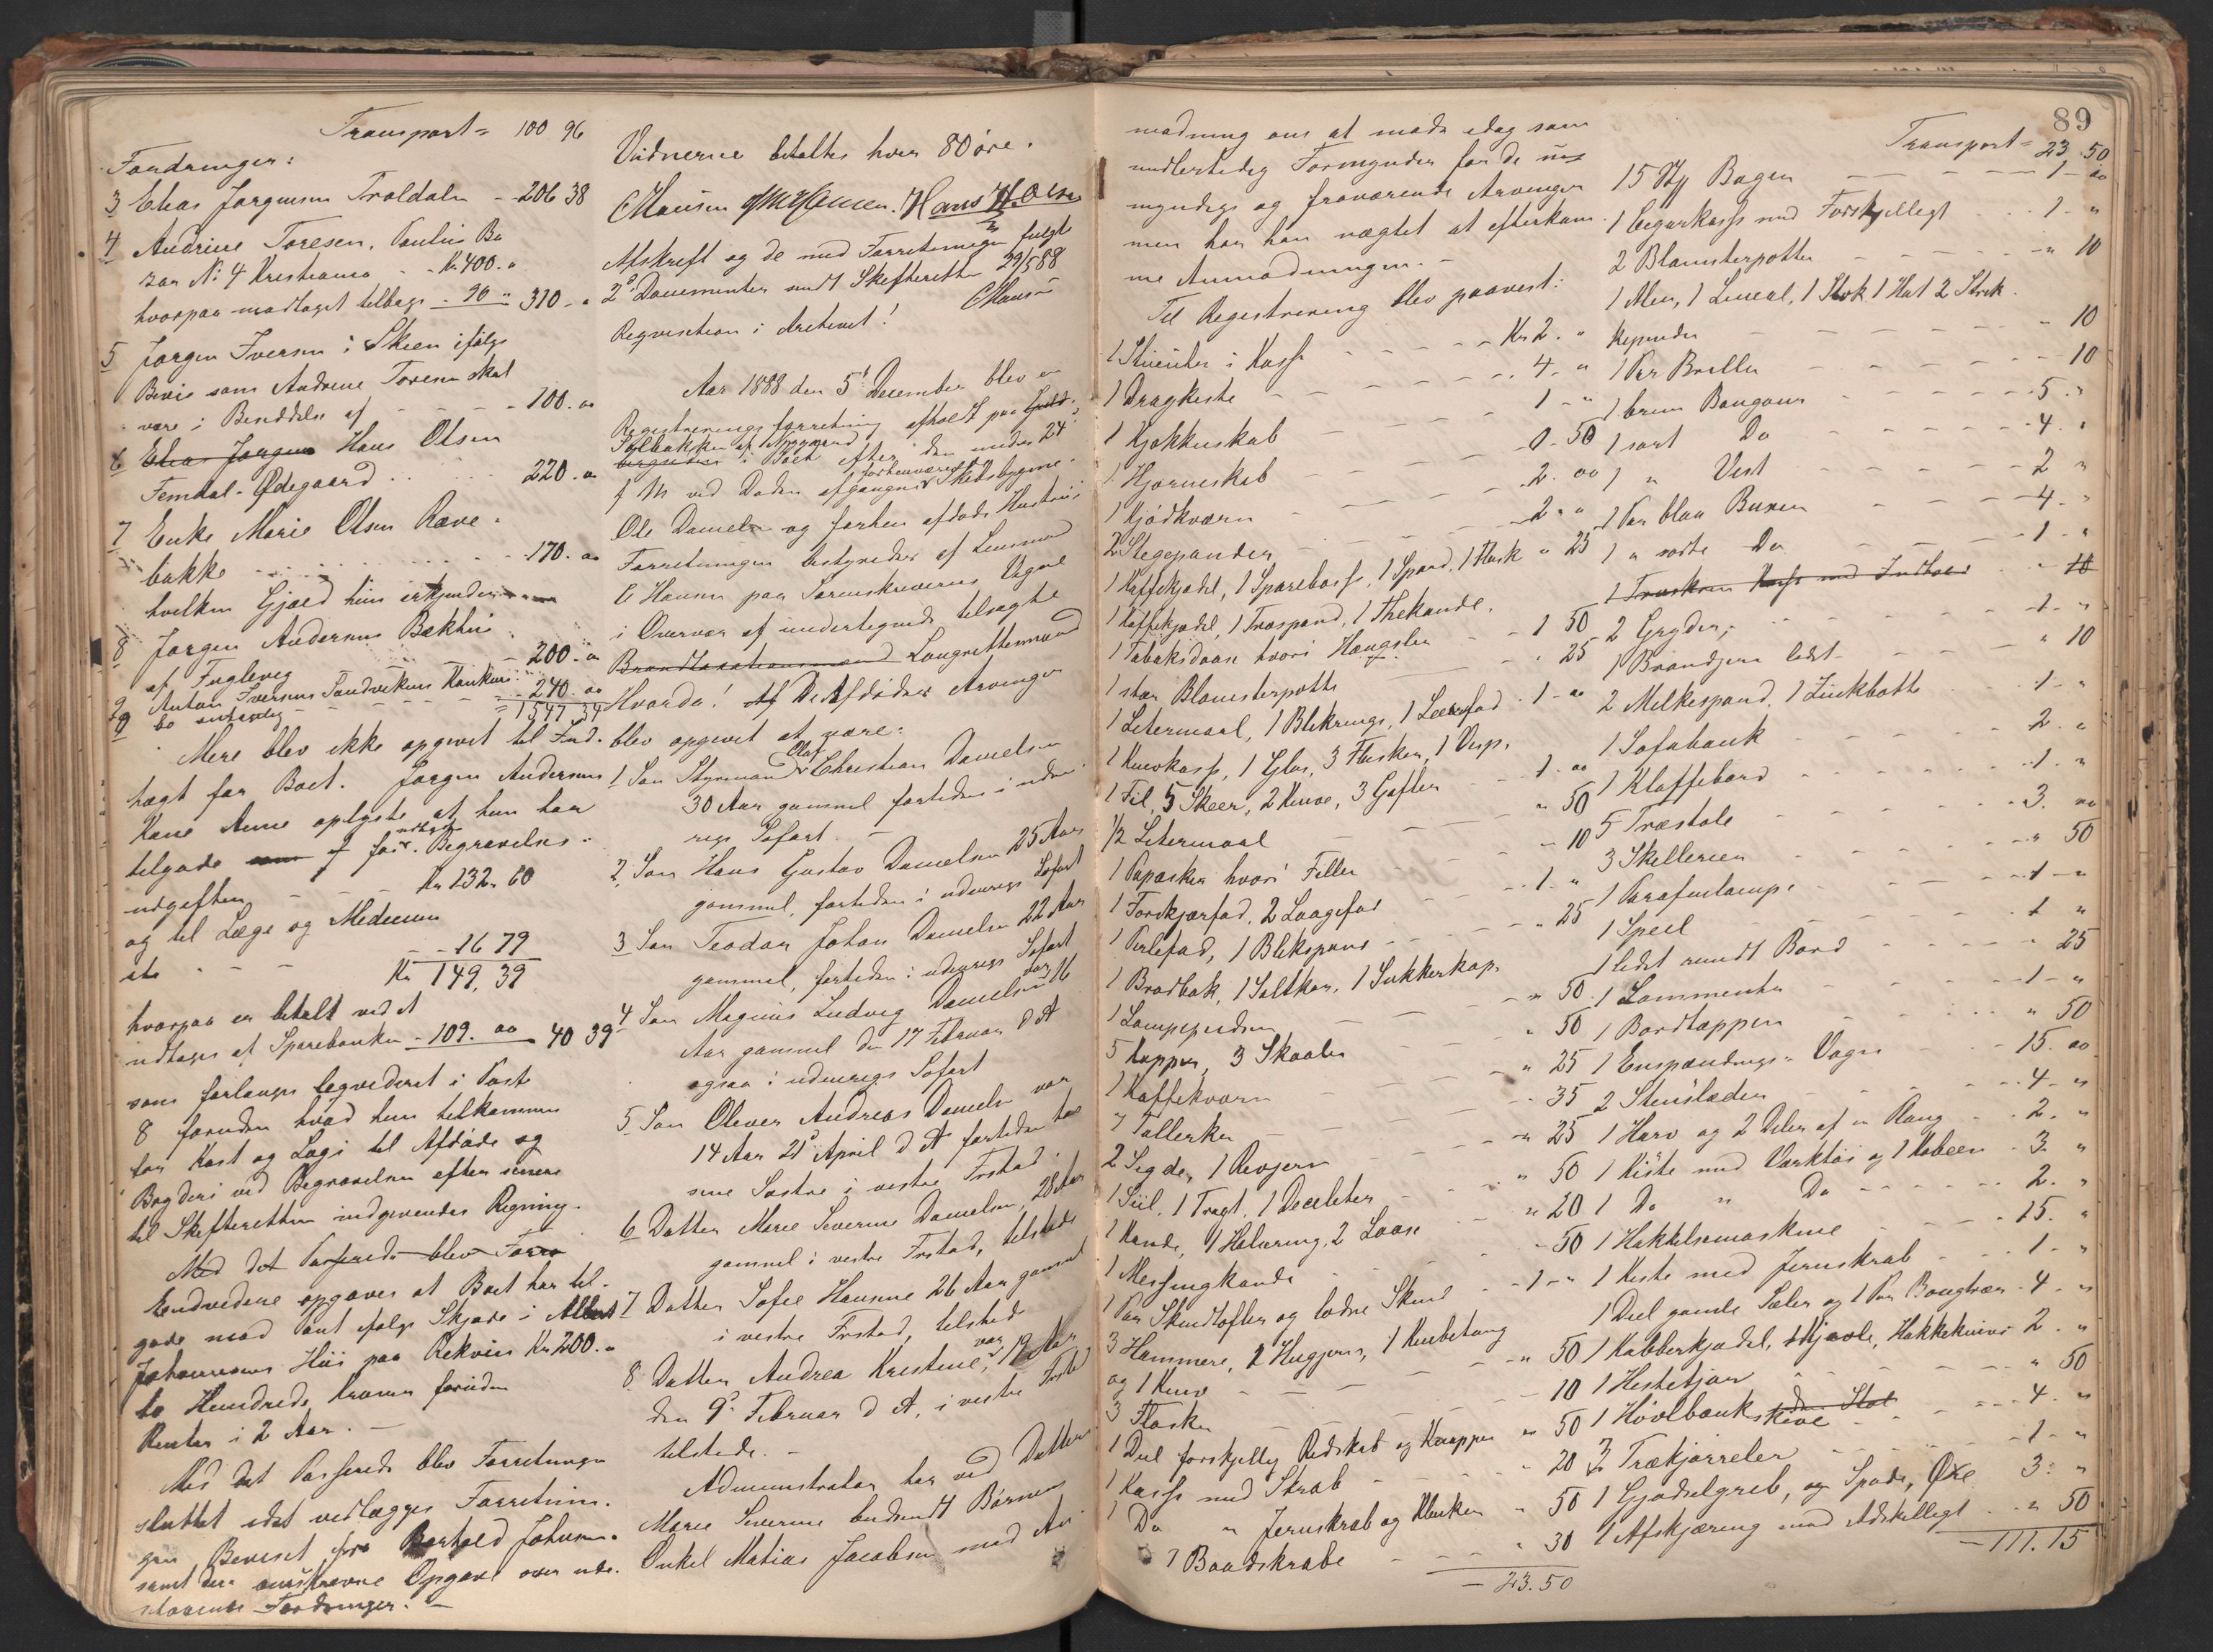 Transport = 100 96
Fordringer:
3 Elias Jørgensen Troldalen - 206 38
4 Andrine Toresen, Paulus Ba
zar No 4 Kristiania - - Kr. 400. "
hvorpaa modtaget tilbage - 90 " 310 - "
5 Jørgen Iversen i Skien ifølge
Bevis som Andrine Toresen skal
være i Besiddelse af - - - - 100. oo
6 Elias Jørgen Hans Olsen
Femdal-Ødegaard . . . . 220. oo
7 Enke Marie Olsen Ræve-
bakke . . . . . . 170. oo
hvilken Gjæld hun erkjender
8 Jørgen Andersens
af Fuglevig - - 200. oo
9 Anton Iversens Sandvikens Konkurs
bo - - - 240. oo
= 1547 34
Mere blev ikke opgivet til Ind-
tægt for Boet. Jørgen Andersens
Kone Anne oplyste at hun har
tilgode for Begravelses-
udgifter - - Kr 132. 60
og til Læge og Medicin
etc - - - - 16 79
Kr 149, 39
hvorpaa er betalt ved et
udtages af Sparebanken - 109. oo 40 39
som forlanges legvideret i Post
8 foruden hvad hun tilkommer
for Kost og Logi til Afdøde og
ved Begravelsen efter senere
til Skifteretten indgivendes Regning.
Med det Passerede blev Forre
Endvidere opgaves at Boet har til-
gode mod Pant ifølge Skjøde i
Johannesens Hus paa Rekvin Kr 200. "
to Hundrede Kroner foruden
Renter i 2 Aar. -
Med det Passerede blev Forretningen
sluttet idet vedlægges Forretnin-
gen Beviset fra Berthold Johnsen
samt den omskrevne Opgave over ude-
staaende Fordringer. -
Vidnerne betaltes hver 80 øre.
CHansen Hans H. Olsen
Afskrift og de med Forretningen fulgte
2de Documenter sendt Skifteretten 29/5 88
Reqvisition i Archivet! CHansen
Aar 1888 den 5te December blev en
Registreringsforretning afholdt paa
Solbakken af
i Boet efter den under 24de
f M ved Døden afgangne forhenværende Skibsbygme.
Ole Danielsen og forhen afdøde Hustru
Forretningen bestyredes af Lensmand
C Hansen paa Sorenskriverens Vegne
i Overvær af undertegnede tilsagte
Brandtaxationsmænd Laugrettesmænd
Hvorda! Af De Afdødes Arvinger
blev opgivet at være:
1 Søn Styrmand Olaf Christian Danielsen
30 Aar gammel fortiden i uden-
rigs Søfart. -
2, Søn Hans Gustav Danielsen 25 Aar
gammel, fortiden i udenrigs Søfart
3 Søn Teodor Johan Danielsen 22 Aar
gammel, fortiden i udenrigs Søfart
4 Søn Magnus Ludvig Danielsen var 16
Aar gammel den 17 Februar d A
ogsaa i udenrigs Søfart
5 Søn Oliver Andreas Danielsen var
14 Aar 21de April d A fortiden hos
sine Søstre i vestre Frstad.
6 Datter Marie Severine Danielsen, 28 Aar
gammel i vestre Frstad, tilstede
7 Datter Sofie Hansine 26 Aar gammel
i vestre Frstad, tilstede
8. Datter Andrea Kristine, var 19 Aar
den 9de Februar d A, i vestre Frstad
tilstede. -
Administrator har ved Datteren
Marie Severine budsendt Børnenes
Onkel Matias Jacobsen med An-
89
modning om at møde idag som
midlertidig Formynder for de u-
myndige og fraværende Arvinger
men har han nægtet at efterkom-
me Anmodningen. -
Til Registrering blev paavist:
1 i Kasse - - - - - Kr 2. "
1 Dragkiste - - - - - 4. "
1 Kjøkkenskab - - - - 1 - "
1 Hjørneskab - - - - 0. 50
1 Kjødkværn - - - - 2. oo
2 Stegepander - - - - 2 - "
1 Kaffekjedel, 1 Sparebøsse, 1 Spand, 1 Flask " 25
1 Kaffekjedel, 1 Træspand, 1 Thekande,
1 Tobaksdaase hvori Hængsler - - 1 50
1 stor Blomsterpotte - - - " 25
1 Litermaal, 1 Blikringe, 1 Leerfad - 1 - oo
1 Knivkasse, 1 Glas, 3 Flasker, 1 Visp,
1 Fil, 5 Skeer, 2 Knive, 3 Gafler - 1. oo
1/2 Litermaal - - - - " 50
1 Papæske hvori Filler - - - - 10
1 Forskjærfad, 2 Laagefad - - 1. "
1 Perlefad, 1 Blikspand - - - - " 25
1 Brødbak, 1 Saltkar, 1 Sukkerkop
1 Lampepudser - - - - " 50
5 Kopper, 3 Skaaler - - - " 50
1 Kaffekværn - - - - - " 25
7 Tallerker - - - - - - 35
2 Segder, 1 Ravjern - - - - " 25
1 Siil, 1 Tragt, 1 Deciliter - - - " 50
1 Kande, 1 Halvring, 2 Laase - - " 20
1 Messingkande - - - - - 50
1 Par Skindtøfler og lodne Skind - 1 - "
3 Hammere, 2 Hugjern, 1 Knibetang
og 1 Kniv - - - - - " 50
3 Flasker - - - - - - 10
1 Deel forskjellig Redskab og Knapper " 50
1 Kasse med Skrab - - - - " 20
1 Do " Jernskrab og Klinken " 50
1 Baadskrabe - - - - " 30
- 23. 50
Transport = 23 50
15 Bøger - - - - - 1 - oo
1 Cegarkasse med Forskjelligt - - 1 - "
2 Blomsterpotter - - - - - " 10
1 Alen, 1 Lineal, 1 Stok 1 Hat 2 Strik-
kepinder - - - - - " 10
1 Par Briller - - - - - 10
1 brun Bongour - - - - 5. "
1 sort Do - - - - 4. "
1 " Vest - - - - - 2 "
1 Par blaa Buxer - - - - 4. "
1 " sorte Do - - - - 1 - "
1 Kasse med Indhold - - 10
2 Gryder, - - - - 1 - "
1 Brandjern lidet - - - - " 10
2 Melkespand, 1 Zinkbøtte - - 1 - "
1 Sofabænk - - - - - 2. "
1 Klaffebord - - - - - 1. "
5 Træstole - - - - - 3. oo
3 Skillerier - - - - - " 50
1 Parafinlampe - - - - 1 - "
1 Speil - - - - - 1 "
1 lidet rundt Bord - - - - " 25
1 Lommeuhr - - - - 1 - "
1 Bordtæppen - - - - " 50
1 Enspændings-Vogn - - - 15. oo
2 Stenslæder - - - - 4 - "
1 Harv og 2 Deler af en - - 2. "
1 Kiste med Værktøi og 1 Kobeen - 3. "
1 Do " Do - - - - 2. "
1 Hakkelsemaskine - - - - 15. "
1 Kiste med Jernskrab - - - 1. "
1 Deel gamle Seler og 1 Par Bougtræer - 4 - "
1 Kobberkjedel, 1 Skjæele, Hakkekniv 2. "
1 Hestetjor - - - - " 50
1 Høvlbænk skive - - - - 4. "
3 Trækjørreler - - - - 1 - "
1 Gjødselgreb, og Spade, Øxe 3: "
1 Afskjæring med Adskilligt - - " 50
- 111. 15